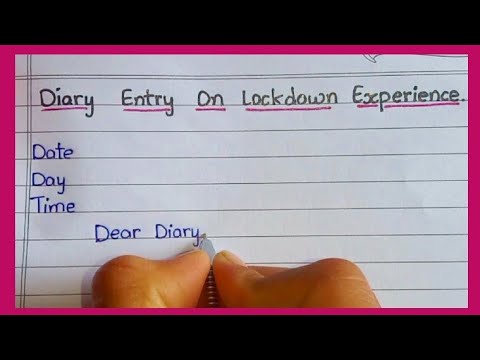 Diary Entry On Lockdown Experience.
Date
Day
Time
Dear Diary,